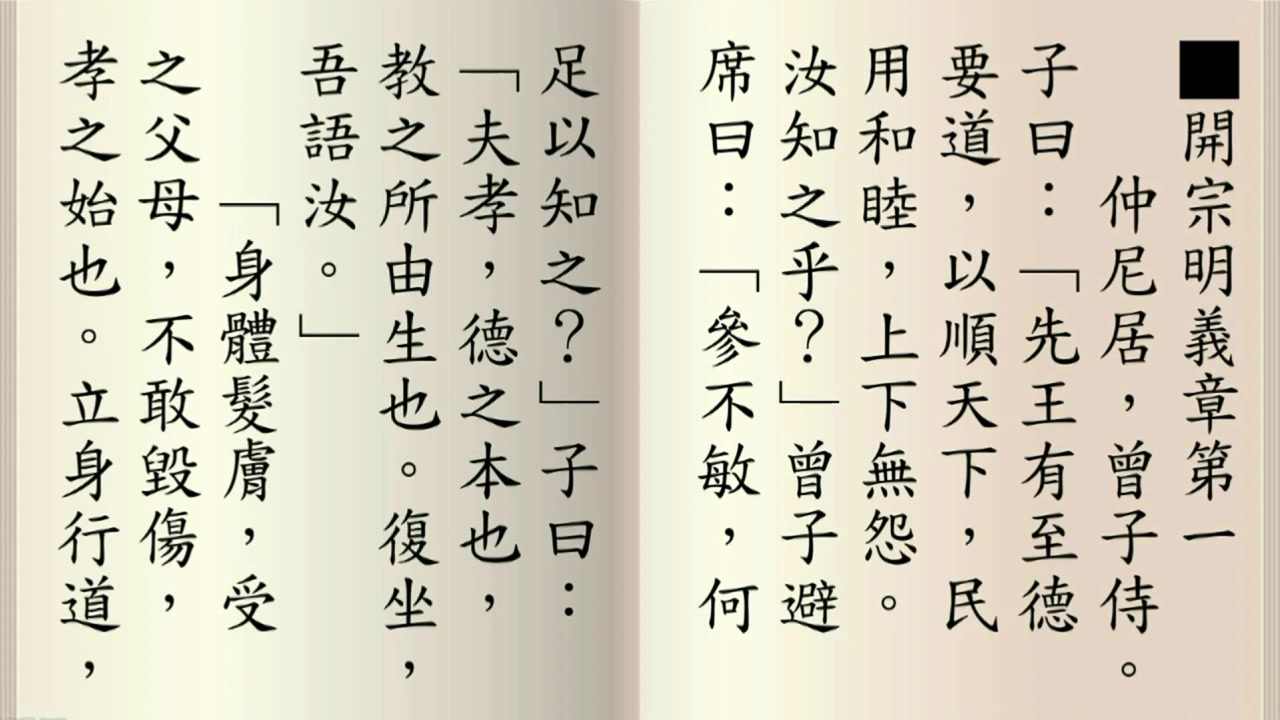 ■開宗明義章第一
仲尼居，曾子侍。
子曰：「先王有至德
要道，以順天下，民
用和睦，上下無怨。
汝知之乎？」曾子避
席曰：「參不敏，何
足以知之？」子曰：
「夫孝，德之本也，
教之所由生也。復坐，
吾語汝。」
「身體髮膚，受
之父母，不敢毀傷，
孝之始也。立身行道，